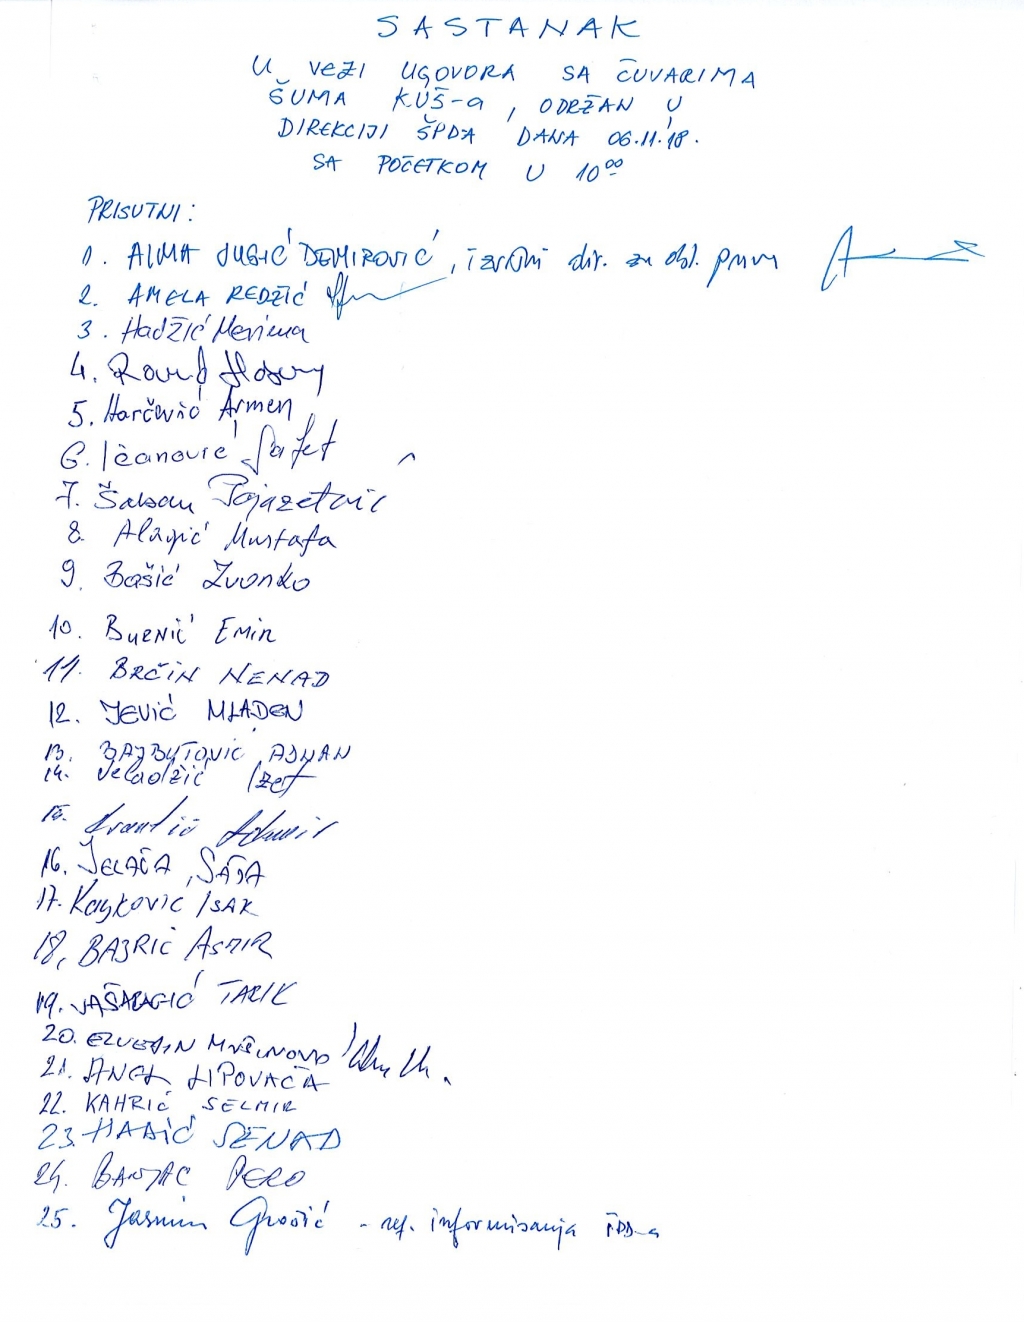 SASTANAK
U VEZI UGOVORA SA ČUVARIMA
ŠUMA KUŠ-a, ODRŽAN U
DIREKCIJI ŠPDA DANA 06.11.'18.
SA POČETKOM U 10⁰⁰
PRISUTNI:
1. ALMA JUSIĆ DEMIROVIĆ, izvršni dir. za obl. prava
2. AMELA REDŽIĆ
3. Hadžić Merima
4.
5. Harčević Armen
6. Ičanović Safet
7. Šaban Pajazetvic
8. Alagić Mustafa
9. Bašić Zvonko
10. Burnić Emir
11. BRČIN NENAD
12. JEVIĆ MLADEN
13. BAJBUTOVIĆ ADNAN
14. Veladžić Izet
15.
16. JELAČA, SAŠA
17. ISAK
18, BAJRIĆ ASMIR
19. JAŠARAGIĆ TARIK
20. EZUDIN
21. ANEL LIPOVAČA
22. KAHRIĆ SELMIR
23. HADIĆ SENAD
24. BANJAC PERO
25. Jasmin Grošić - ref. informisanja ŠPD-a